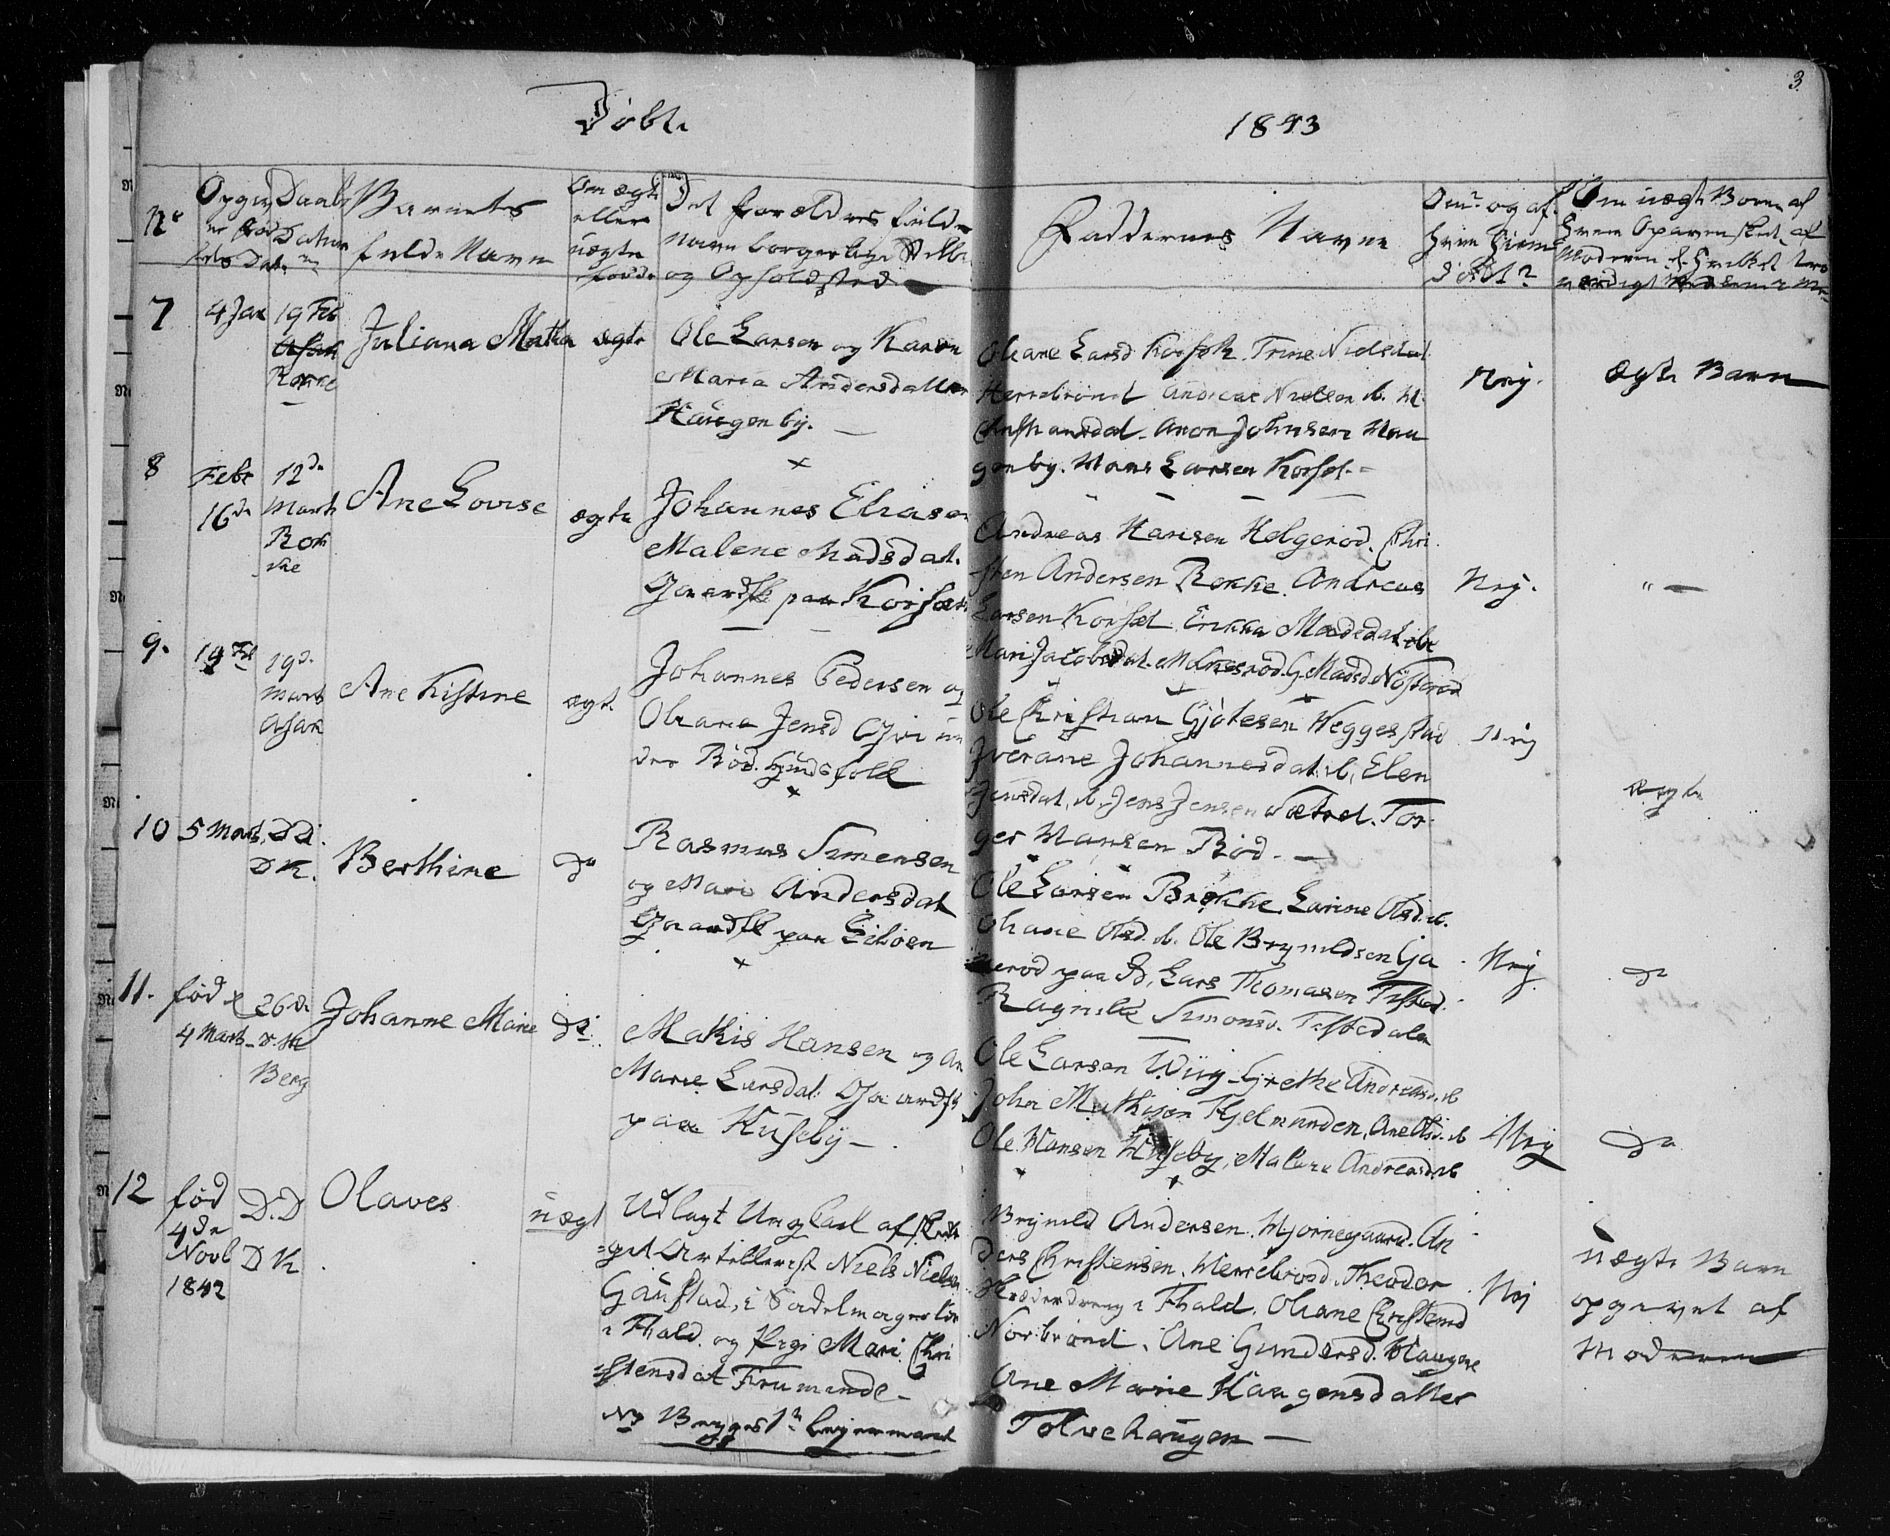 3.
Døbte
1843
No
Opgiv Daabs
Datum
Barnets
fulde Navn
Om ægte
eller
uægte
Forældres fulde
Navn borgerlige
og Opholdsted
Faddernes Navne
Om og af
Hvem
døbt?
Om uægte Barn af
Hvem
Moderen
7
4 Jan
19 Feb
Rokke
Juliana Mathea
ægte
Ole Larsen og Karen
Maria Andersdatter
Haugenby.
Oleane Larsd Korsæth. Trine Nielsdat
Herrebrønd Andreas Nielsen ib.
Anon Johnsen Hau
genby. Hans Larsen Korset.
Nej.
Ægte Barn
8
Febr
16de
12de
Marts
Rok
ke
Ane Lovise
ægte
Johannes Eliasen
Malene Madsdat.
Gaardfk paa Korsæt
Andreas Hansen Helgerød. Chri
sten Andersen Rokke. Andreas
Larsen Korsæt. Erikka Madsdat ibt
Mari Jacobsdat.
Nej.
" —
9.
14 Feb
19d.
Marts
Asak
Ane Kistine
ægt.
Johannes Pedersen og
Oleana Jensd
der Rød. Hjusfolk
Ole Christian Gjøtesen Heggestad
Iverane Johannesdat. ib, Elen
Jensdat, ib. Jens Jensen Sætret. Tor
ger Hansen Rød. —
Nej
ægte
10
5 Mart.
D D.
D K.
Berthine
do
Rasmus Simensen
og Mari Andersdat
Gaardfk paa Liboen
Ole Larsen Brekke. Larine Olsd. ib.
Oleane Olsd. ib. Ole Brynildsen Ga
serød paa Id, Lars Thomasen Tisted.
Ragnild Simonsd. Tistedalen
Nej
do
11.
fød d
4 Marts
26de
Berg
Johanne Marie
do.
Matis Hansen og An
Marie Larsdat. Gaardfk
paa Huseby —
Ole Larsen Wiig. Grethe Andreasd. ib
John Mathison Hjelmunden, Ane Olsd. ib
Ole Hansen Huseby, Malene Andreasd. ib
Nej
do
12
fød
4de
Novb
1842
D. D
D K
Olaves
uægt
Udlagt Ungkarl af
get Artillerist Niels Nielsen
Gaustad, i Sadelmagerlære
i Fhald. og Pige Mari Chri
stensdat
No Begges 1ste Leiermaal
Brynild Andersen. Hjørnegaard. An
ders Christensen. Herrebrød. Theodor
Skræderdreng i Fhald. Oleane Christensd
Norbrønd. Ane Gundersd. Haugene
Ane Marie Haagensdatter
Tolvehaugen —
Nej
uægte Barn
opgivet af
Moderen